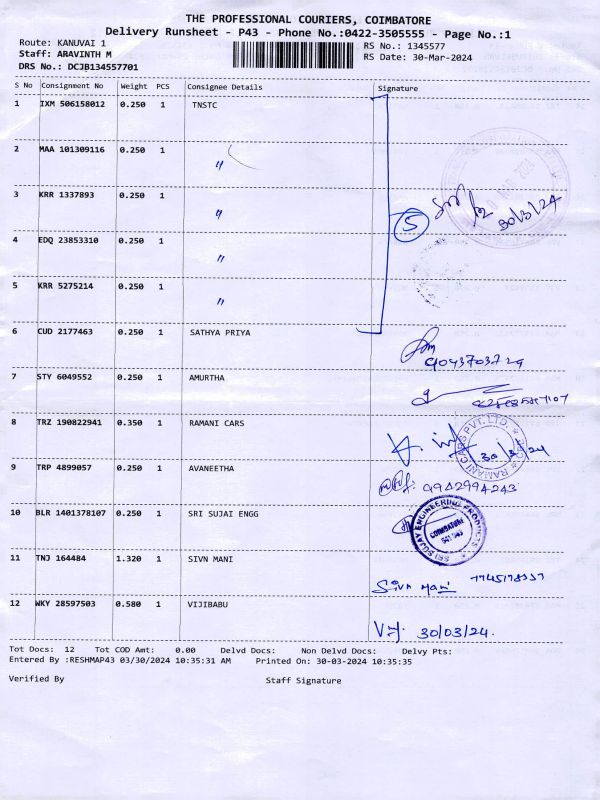 THE PROFESSIONAL COURIERS, COIMBATORE
Delivery Runsheet - P43 - Phone No.:0422-3505555 - Page No.:1
Route: KANUVAI 1
RS No.: 1345577
Staff: ARAVINTH M
RS Date: 30-Mar-2024
DRS No.: DCJB134557701
S No Consignment No Weight PCS Consignee Details Signature
1 IXM 506158012 0.250 1 TNSTC
2 MAA 101309116 0.250 1 〃
3 KRR 1337893 0.250 1 〃
5 30/3/24
4 EDQ 23853310 0.250 1 〃
5 KRR 5275214 0.250 1 〃
6 CUD 2177463 0.250 1 SATHYA PRIYA
9043703729
7 STY 6049552 0.250 1 AMURTHA
8 TRZ 190822941 0.350 1 RAMANI CARS
RAMANI CARS PVT. LTD.
30/3/24
9 TRP 4899057 0.250 1 AVANEETHA
9942994243
10 BLR 1401378107 0.250 1 SRI SUJAI ENGG
SRI SUJAY ENGINEERING PRODUCTS
COIMBATORE
11 TNJ 164484 1.320 1 SIVN MANI
Sivn Mani
12 WKY 28597503 0.580 1 VIJIBABU
30/03/24.
Tot Docs: 12 Tot COD Amt: 0.00 Delvd Docs: Non Delvd Docs: Delvy Pts:
Entered By :RESHMAP43 03/30/2024 10:35:31 AM Printed On: 30-03-2024 10:35:35
Verified By Staff Signature